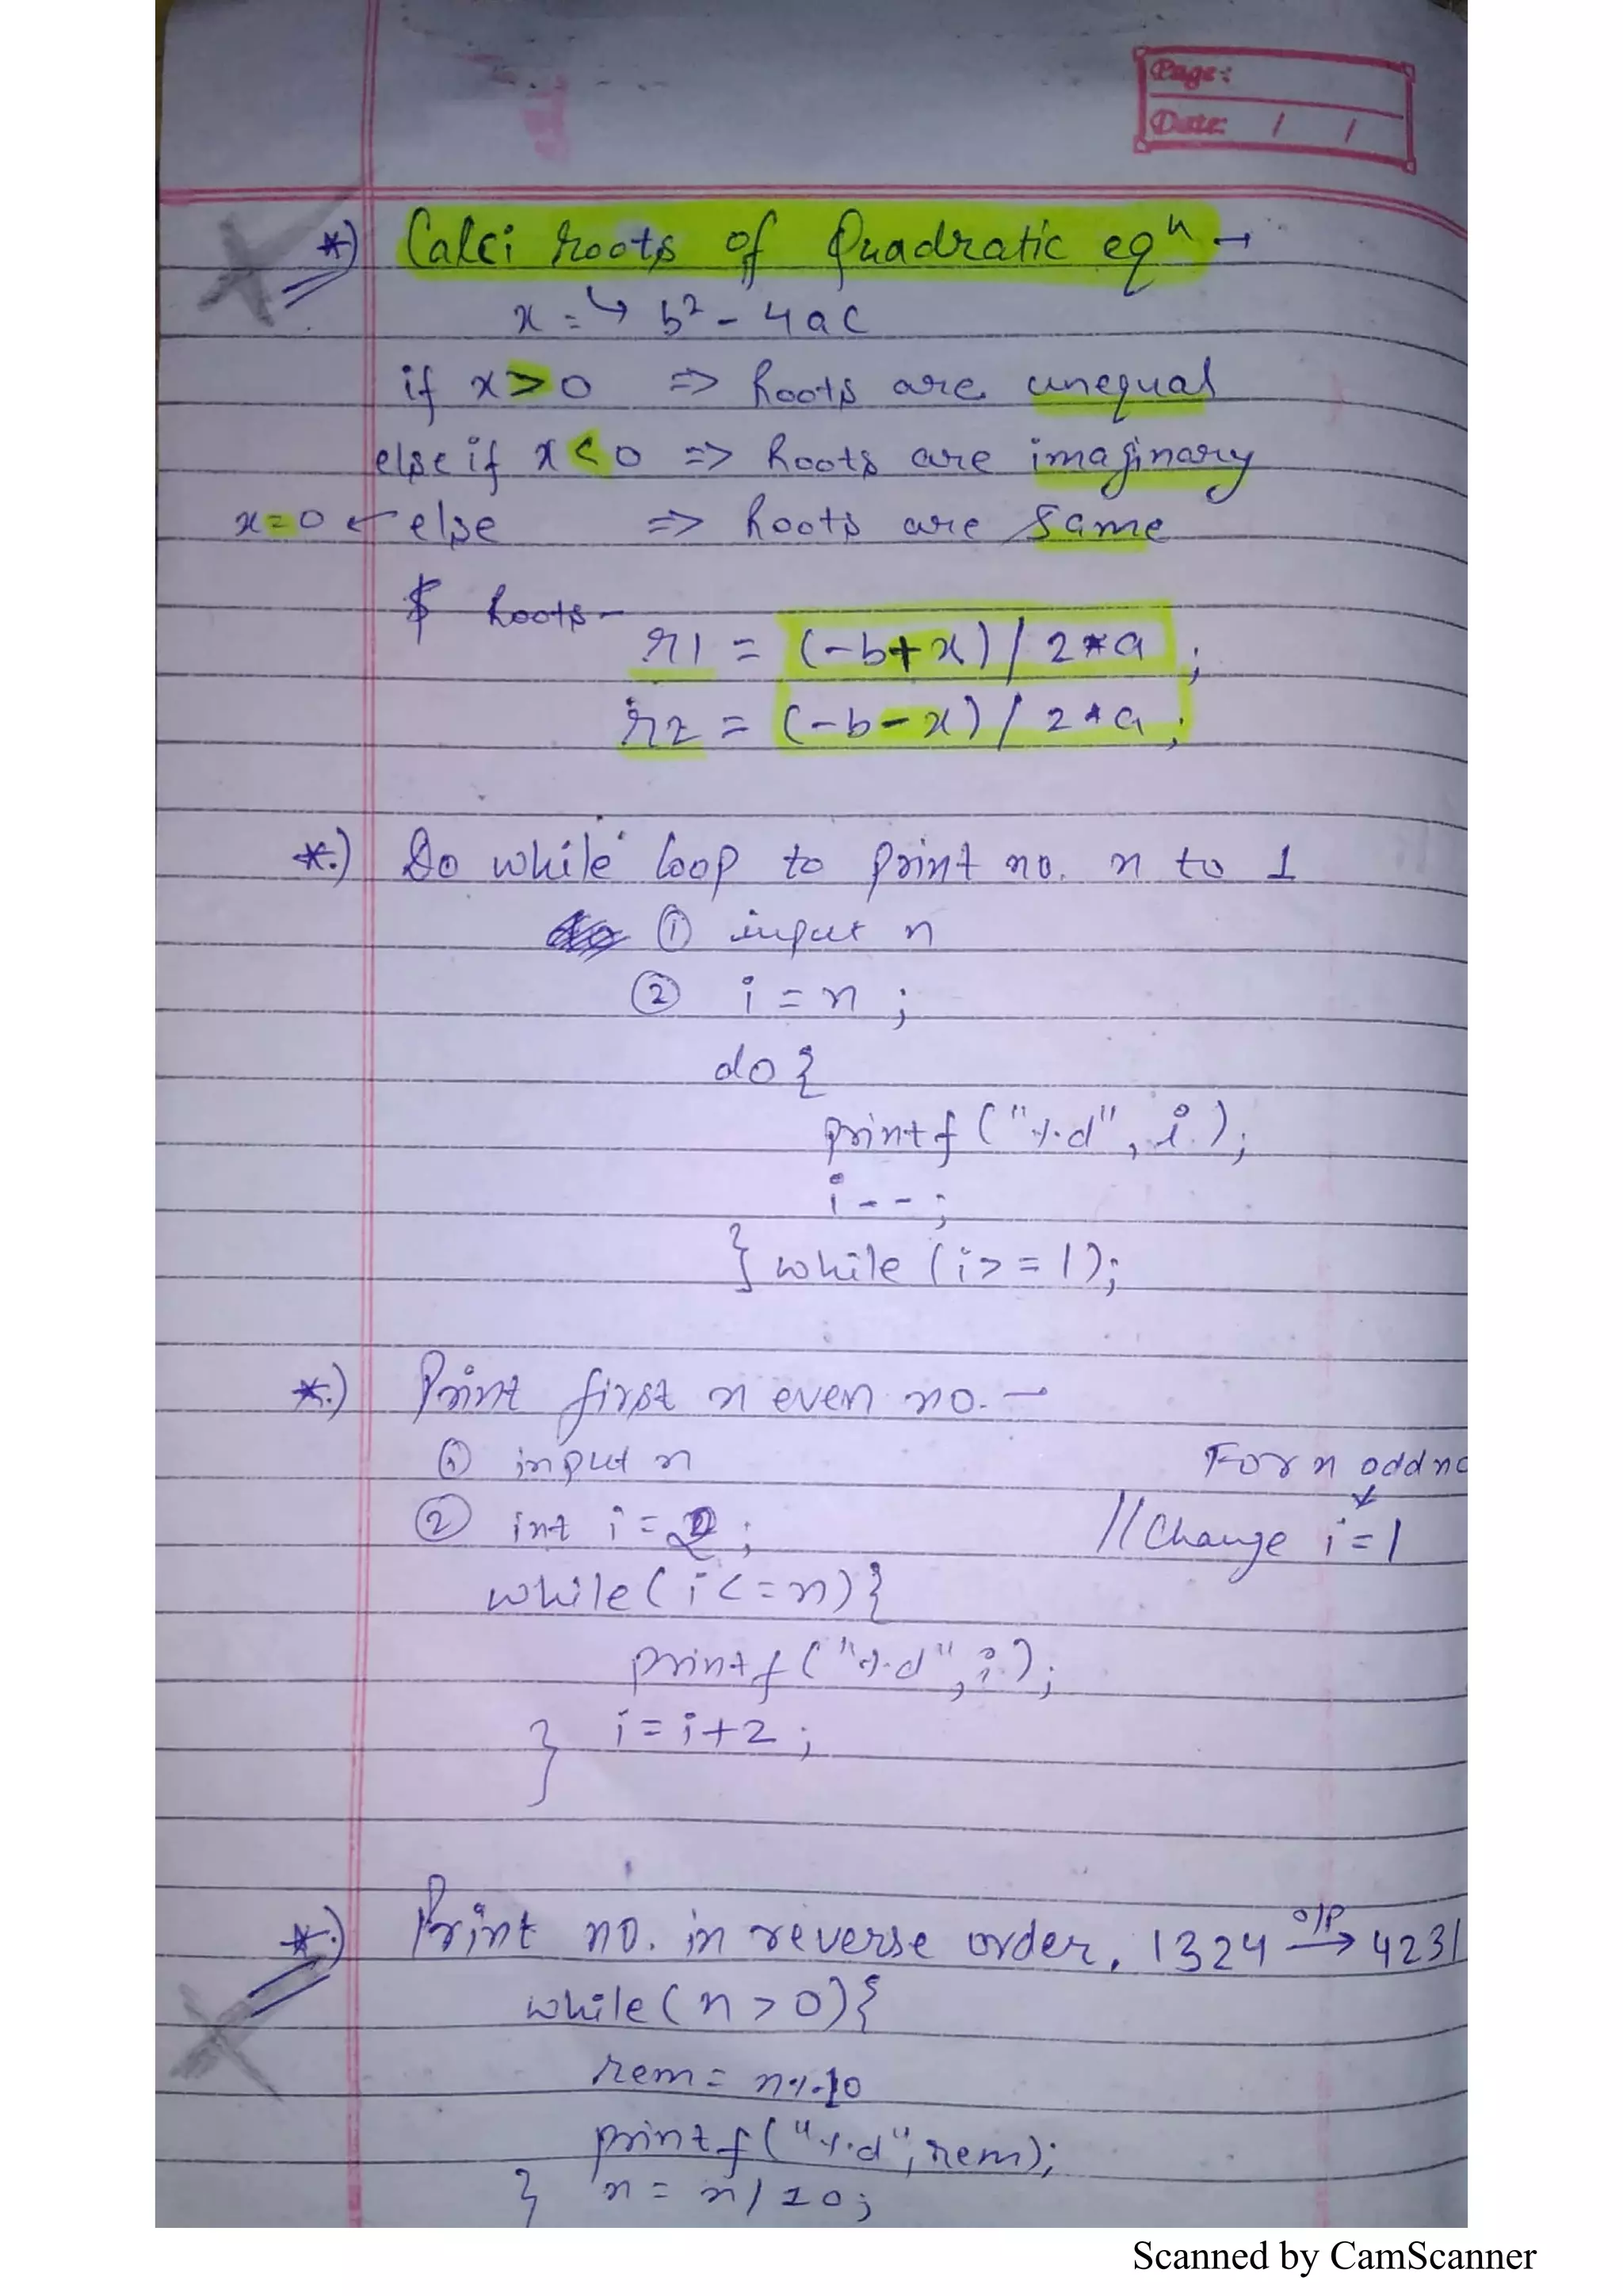 Page:
Date: / /
*) Calci roots of Quadratic eqⁿ →
x = ↳ b² - 4ac
if x > 0 => Roots are unequal
else if x < 0 => Roots are imaginary
x = 0 ← else => Roots are Same
$ Roots -
r1 = (-b+x) / 2*a ;
r2 = (-b-x) / 2*a ;
*.) Do while loop to print no. n to 1
① input n
② i = n ;
do {
printf ("%d", i );
i -- ;
} while (i >= 1);
*.) Print first n even no. -
① input n
For n odd no
② int i = 2 ;
// Change i = 1
while ( i <= n) {
printf ("%d", i );
i = i + 2 ;
}
*.) Print no. in reverse order. 1324 O/P→ 4231
while ( n > 0) {
rem = n%10
printf ("%d", rem);
} n = n / 10;
Scanned by CamScanner